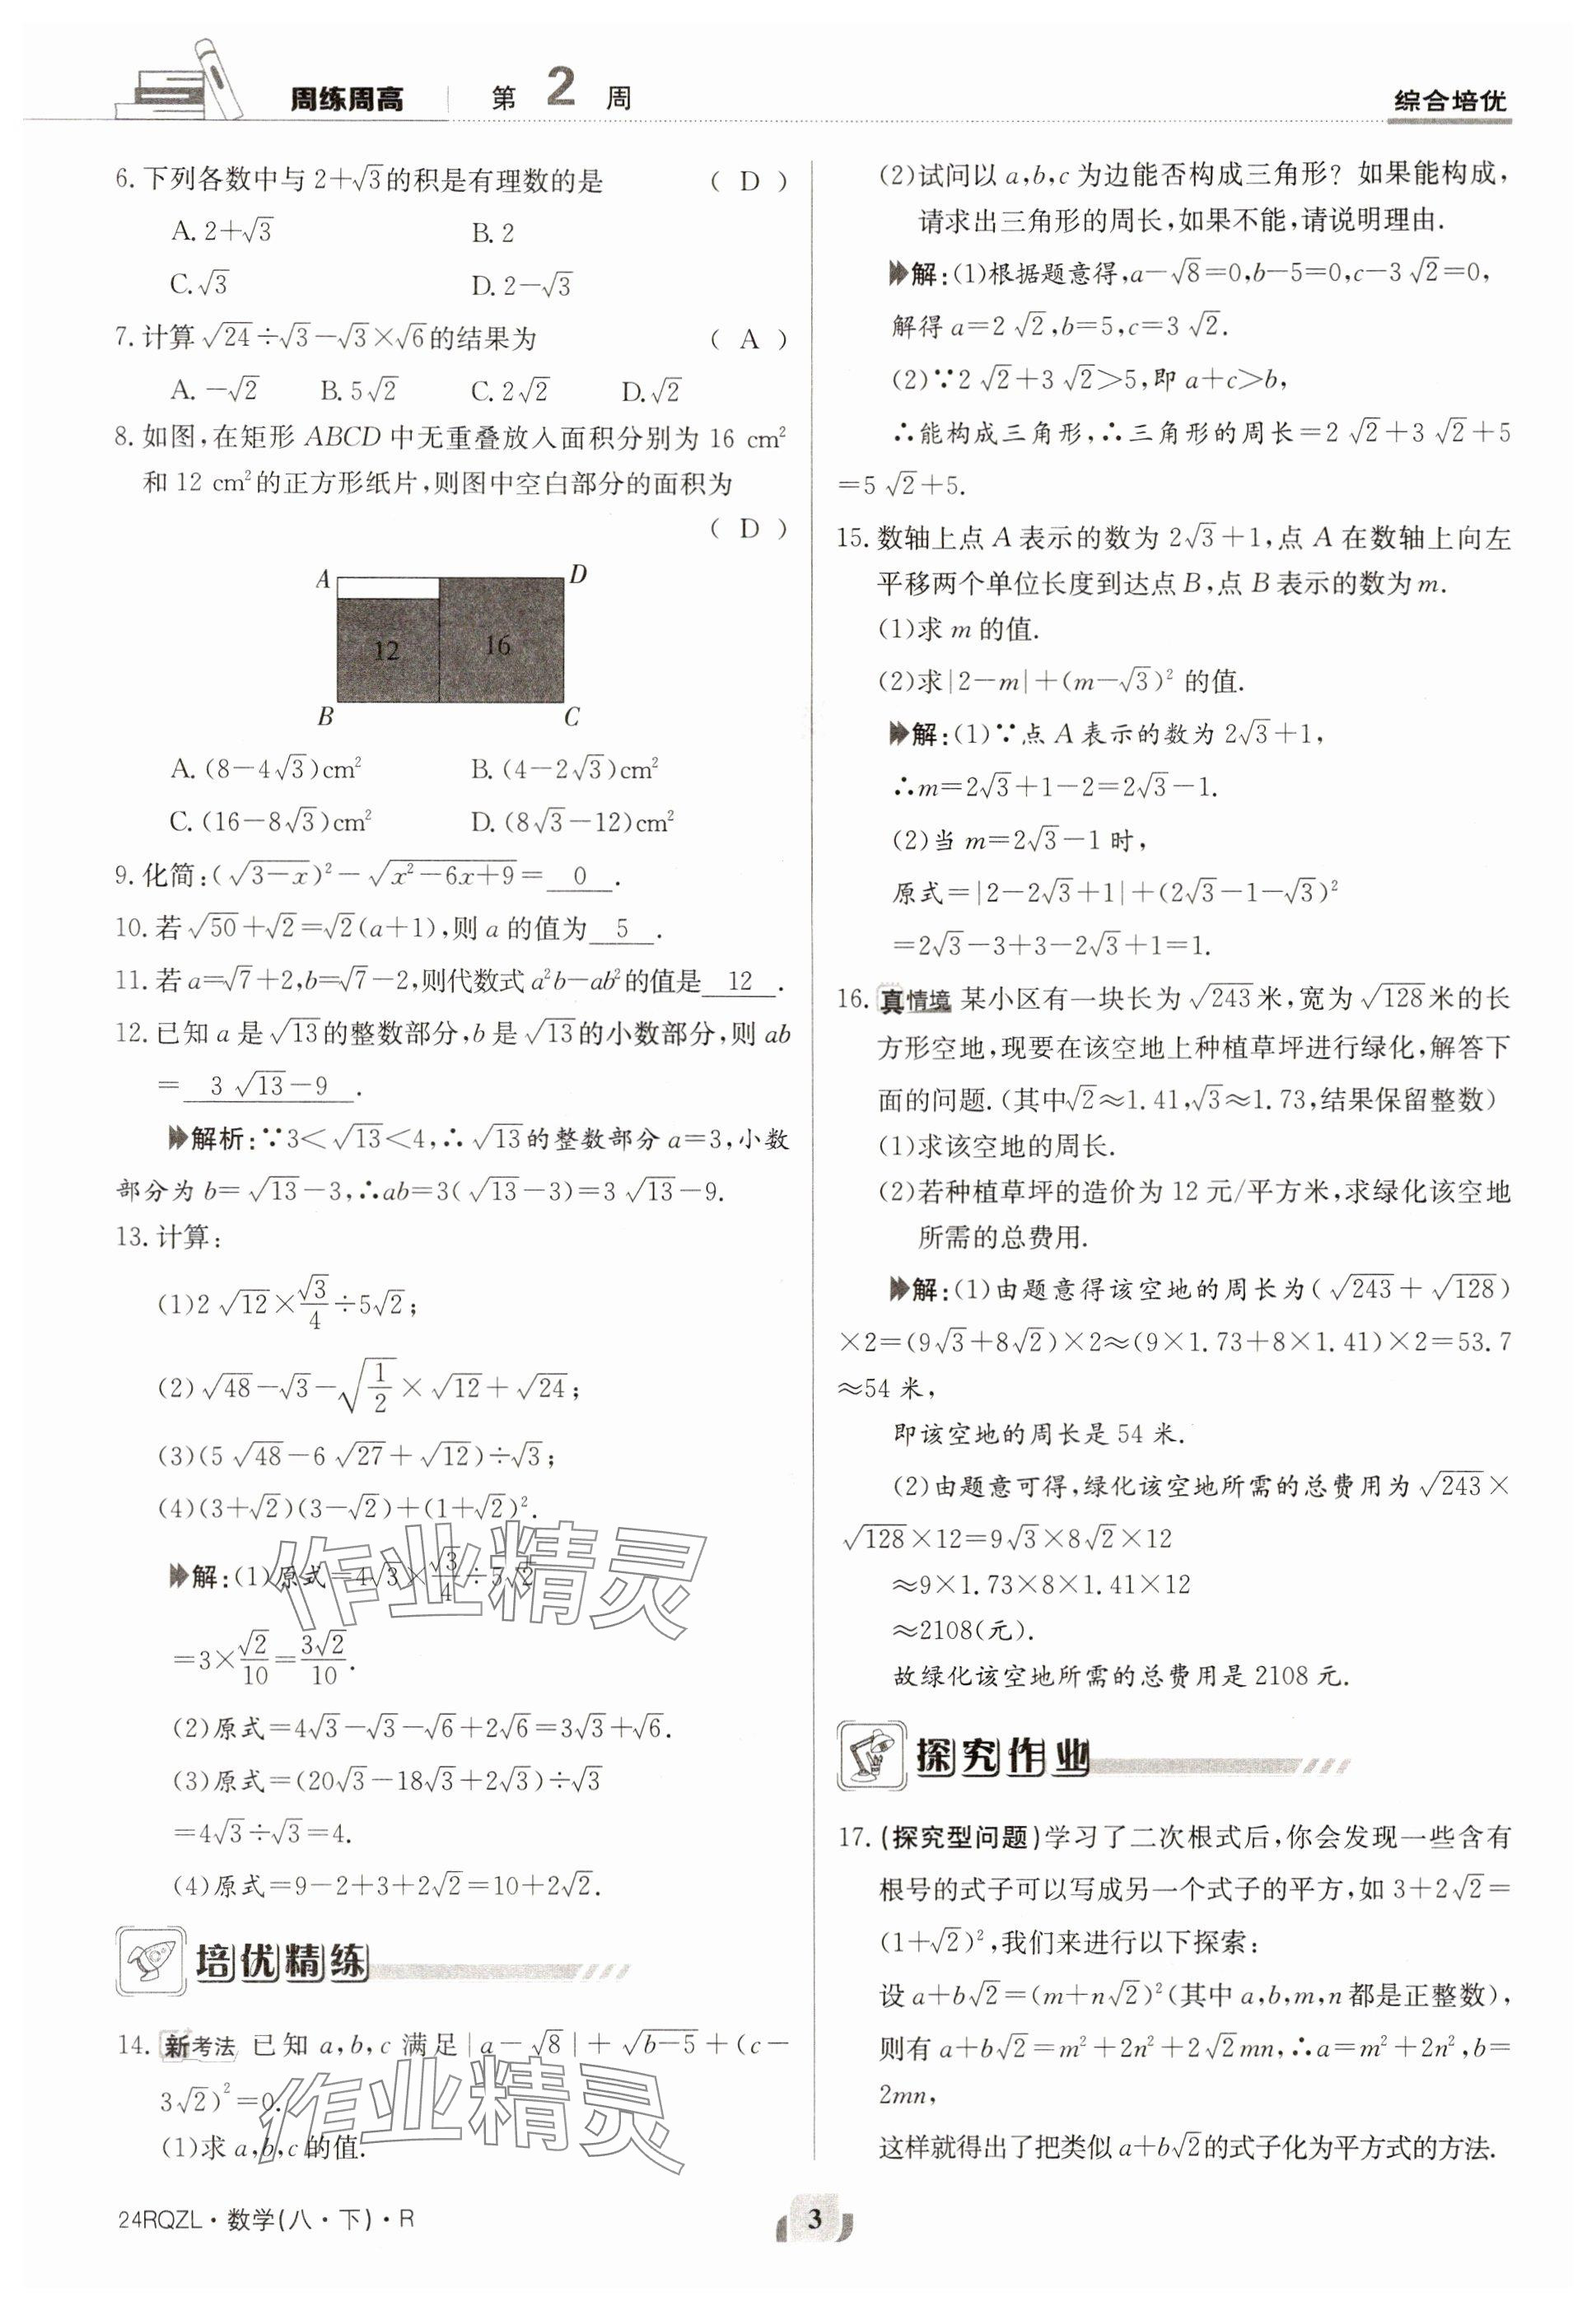 周练周高 第 2 周
综合培优
6. 下列各数中与 2+√3的积是有理数的是 ( D )
A. 2+√3 B. 2
C. √3 D. 2−√3
7. 计算 √24÷√3−√3×√6的结果为 ( A )
A. −√2 B. 5√2 C. 2√2 D. √2
8. 如图,在矩形 ABCD 中无重叠放入面积分别为 16 cm²
和 12 cm²的正方形纸片,则图中空白部分的面积为
( D )
A D
12 16
B C
A. (8−4√3)cm² B. (4−2√3)cm²
C. (16−8√3)cm² D. (8√3−12)cm²
9. 化简:(√(3−x))²−√(x²−6x+9)= 0 .
10. 若 √50+√2=√2(a+1),则 a 的值为 5 .
11. 若 a=√7+2,b=√7−2,则代数式 a²b−ab²的值是 12 .
12. 已知 a 是 √13的整数部分,b 是 √13的小数部分,则 ab
= 3 √13−9 .
解析:∵3<√13<4,∴√13的整数部分 a=3,小数
部分为 b=√13−3,∴ab=3(√13−3)=3 √13−9.
13. 计算:
(1)2 √12×√3/4÷5√2;
(2)√48−√3−√(1/2)×√12+√24;
(3)(5 √48−6 √27+√12)÷√3;
(4)(3+√2)(3−√2)+(1+√2)².
解:(1)原式=4√3×√3/4÷5√2
=3×√2/10=3√2/10.
(2)原式=4√3−√3−√6+2√6=3√3+√6.
(3)原式=(20√3−18√3+2√3)÷√3
=4√3÷√3=4.
(4)原式=9−2+3+2√2=10+2√2.
培优精练
14. 新考法 已知 a,b,c 满足|a−√8|+√(b−5)+(c−
3√2)²=0.
(1)求 a,b,c 的值.
(2)试问以 a,b,c 为边能否构成三角形? 如果能构成,
请求出三角形的周长,如果不能,请说明理由.
解:(1)根据题意得,a−√8=0,b−5=0,c−3 √2=0,
解得 a=2 √2,b=5,c=3 √2.
(2)∵2 √2+3 √2>5,即 a+c>b,
∴能构成三角形,∴三角形的周长=2 √2+3 √2+5
=5 √2+5.
15. 数轴上点 A 表示的数为 2√3+1,点 A 在数轴上向左
平移两个单位长度到达点 B,点 B 表示的数为 m.
(1)求 m 的值.
(2)求|2−m|+(m−√3)² 的值.
解:(1)∵点 A 表示的数为 2√3+1,
∴m=2√3+1−2=2√3−1.
(2)当 m=2√3−1 时,
原式=|2−2√3+1|+(2√3−1−√3)²
=2√3−3+3−2√3+1=1.
16. 真情境 某小区有一块长为 √243米,宽为 √128米的长
方形空地,现要在该空地上种植草坪进行绿化,解答下
面的问题.(其中√2≈1.41,√3≈1.73,结果保留整数)
(1)求该空地的周长.
(2)若种植草坪的造价为 12 元/平方米,求绿化该空地
所需的总费用.
解:(1)由题意得该空地的周长为(√243+√128)
×2=(9√3+8√2)×2≈(9×1.73+8×1.41)×2=53.7
≈54 米,
即该空地的周长是 54 米.
(2)由题意可得,绿化该空地所需的总费用为 √243×
√128×12=9√3×8√2×12
≈9×1.73×8×1.41×12
≈2108(元).
故绿化该空地所需的总费用是 2108 元.
探究作业
17. (探究型问题)学习了二次根式后,你会发现一些含有
根号的式子可以写成另一个式子的平方,如 3+2√2=
(1+√2)²,我们来进行以下探索:
设 a+b√2=(m+n√2)²(其中 a,b,m,n 都是正整数),
则有 a+b√2=m²+2n²+2√2mn,∴a=m²+2n²,b=
2mn,
这样就得出了把类似 a+b√2的式子化为平方式的方法.
作业精灵
作业精灵
24RQZL·数学(八·下)·R
3